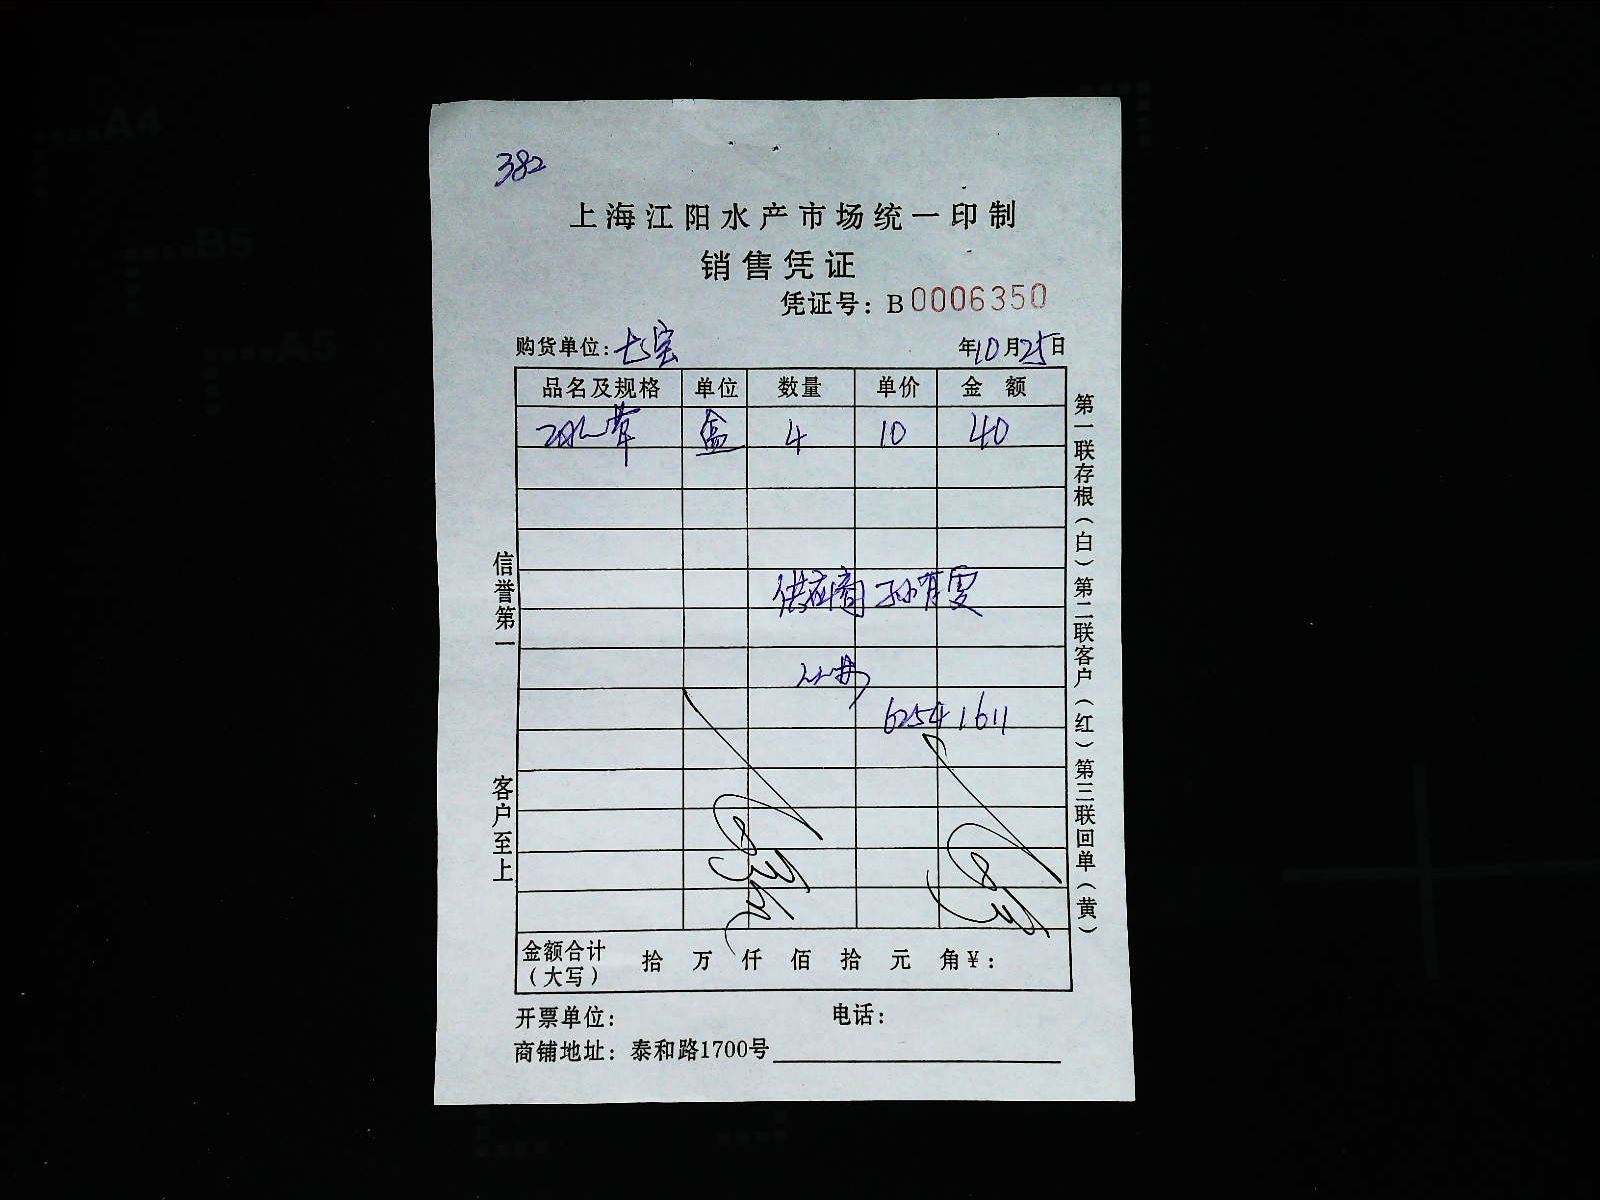 382
上海江阳水产市场统一印制
销售凭证
凭证号：B0006350
购货单位：七宝 年10月25日
品名及规格 单位 数量 单价 金额
草 盒 4 10 40
供应商 孙
62541611
金额合计（大写） 拾 万 仟 佰 拾 元 角¥：
开票单位： 电话：
商铺地址：泰和路1700号
信誉第一 客户至上
第一联存根（白）第二联客户（红）第三联回单（黄）